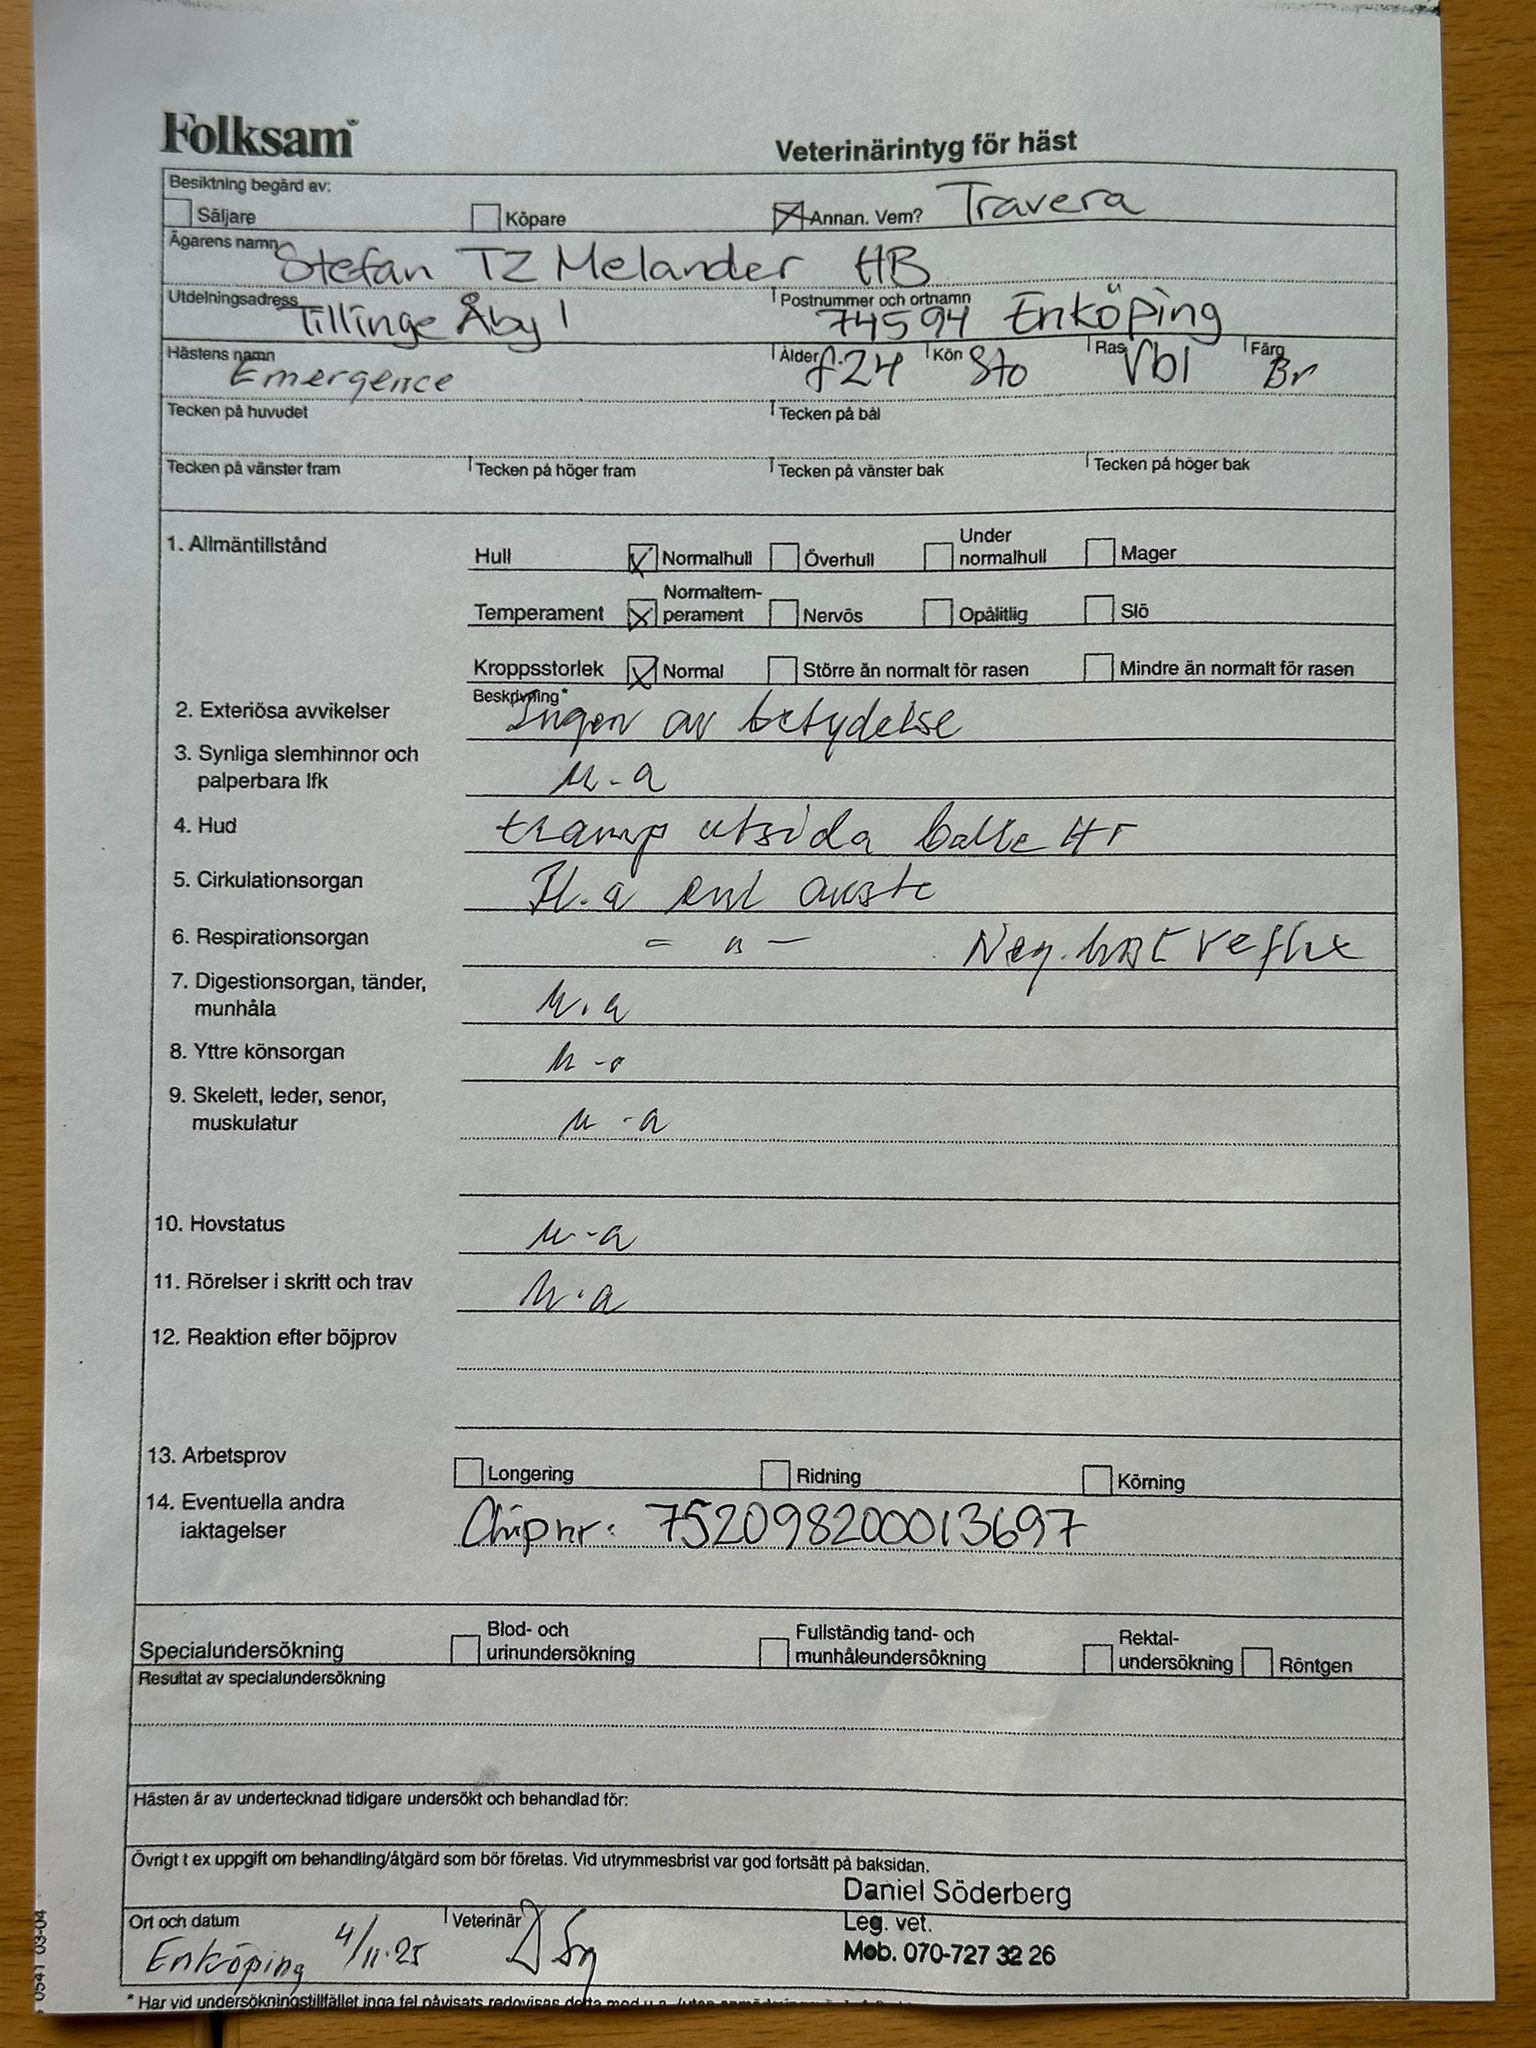 Folksam
Veterinärintyg för häst
Besiktning begärd av:
Säljare Köpare Annan. Vem? Travera
Ägarens namn Stefan TZ Melander HB
Utdelningsadress Tillinge Åby 1 Postnummer och ortnamn 74594 Enköping
Hästens namn Emergence Ålder f.24 Kön Sto Ras Vbl Färg Br
Tecken på huvudet Tecken på bål
Tecken på vänster fram Tecken på höger fram Tecken på vänster bak Tecken på höger bak
1. Allmäntillstånd Hull Normalhull Överhull Under normalhull Mager
Temperament Normaltemperament Nervös Opålitlig Slö
Kroppsstorlek Normal Större än normalt för rasen Mindre än normalt för rasen
Beskrivning*
2. Exteriösa avvikelser Ingen av betydelse
3. Synliga slemhinnor och
palperbara lfk u-a
4. Hud tramp utsida balle Hr
5. Cirkulationsorgan H.a enl ausk
6. Respirationsorgan - " - Neg. host reflex
7. Digestionsorgan, tänder,
munhåla u.a
8. Yttre könsorgan u-a
9. Skelett, leder, senor,
muskulatur u-a
10. Hovstatus u-a
11. Rörelser i skritt och trav u.a
12. Reaktion efter böjprov
13. Arbetsprov Longering Ridning Körning
14. Eventuella andra
iaktagelser Chipnr: 752098200013697
Specialundersökning Blod- och urinundersökning Fullständig tand- och munhåleundersökning Rektal-undersökning Röntgen
Resultat av specialundersökning
Hästen är av undertecknad tidigare undersökt och behandlad för:
Övrigt t ex uppgift om behandling/åtgärd som bör företas. Vid utrymmesbrist var god fortsätt på baksidan.
Daniel Söderberg
Leg. vet.
Mob. 070-727 32 26
Ort och datum Enköping 4/11.25 Veterinär
* Har vid undersökningstillfället inga fel påvisats redovisas detta med u.a.
0541 03-04